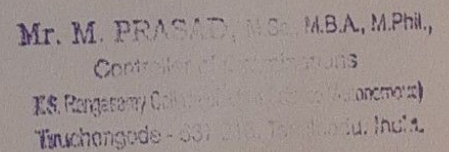 Mr. M. PRASAD, M.Sc., M.B.A., M.Phil.,
Controller of Examinations
K.S. Rangasamy College (Autonomous)
Tiruchengode - 637 215. Tamilnadu. India.